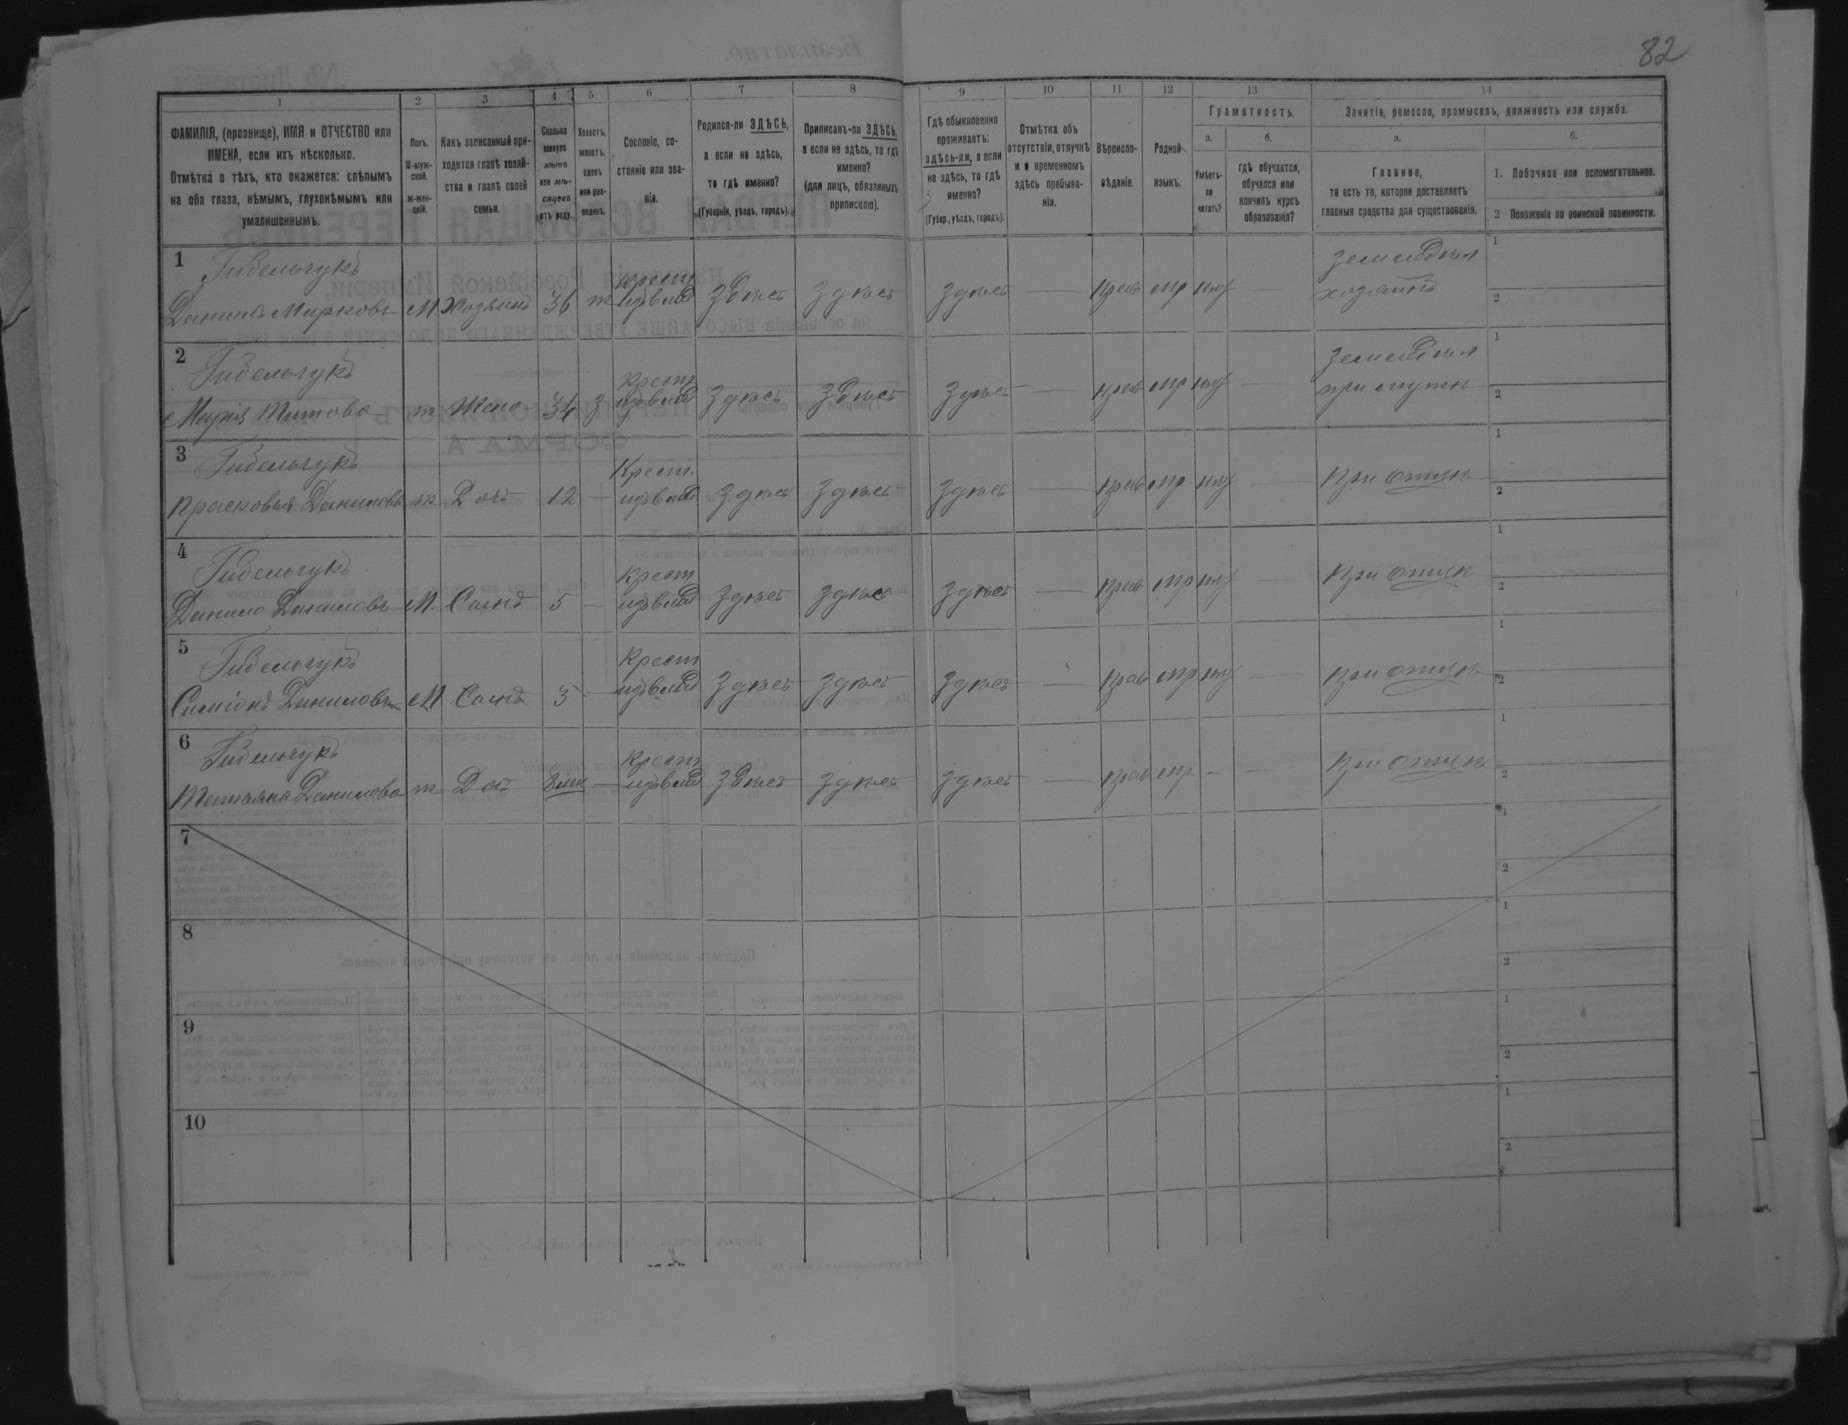 82
1 2 3 4 5 6 7 8 9 10 11 12 13 14
ФАМИЛІЯ, (прозвище), ИМЯ и ОТЧЕСТВО или
ИМЕНА, если ихъ нѣсколько.
Отмѣтка о тѣхъ, кто окажется: слѣпымъ
на оба глаза, нѣмымъ, глухонѣмымъ или
умалишоннымъ.
Полъ.
М-муж-
ской.
ж-жен-
скій.
Какъ записанный при-
ходится главѣ хозяй-
ства и главѣ своей
семьи.
Сколько
минуло
лѣтъ
или мѣ-
сяцевъ
отъ роду.
Холостъ,
женатъ,
вдовъ
или раз-
веденъ.
Сословіе, со-
стояніе или зва-
ніе.
Родился-ли ЗДѢСЬ,
а если не здѣсь,
то гдѣ именно?
(Губернія, уѣздъ, городъ).
Приписанъ-ли ЗДѢСЬ,
а если не здѣсь, то гдѣ
именно?
(для лицъ, обязанныхъ
припискою).
Гдѣ обыкновенно
проживаетъ:
здѣсь-ли, а если
не здѣсь, то гдѣ
именно?
(Губер., уѣздъ, городъ).
Отмѣтка объ
отсутствіи, отлучкѣ
и о временномъ
здѣсь пребыва-
ніи.
Вѣроиспо-
вѣданіе.
Родной
языкъ.
Грамотность.
а.
Умѣетъ-
ли
читать?
б.
гдѣ обучается,
обучался или
кончилъ курсъ
образованія?
Занятія, ремесло, промыселъ, должность или служба.
а.
Главное,
то есть то, которое доставляетъ
главныя средства для существованія.
б.
1. Побочное или вспомогательное.
2 Положеніе по воинской повинности.
1 Гибельчукъ земледѣл 1
Данило Марковъ М. Хозяинъ 36 ж крест. здѣсь здѣсь здѣсь — прав мр хозяинъ 2
2 Гибельчукъ земледѣл 1
Марія Титова ж Жена 34 з крест. здѣсь здѣсь здѣсь — прав мр при мужѣ 2
3 Гибельчукъ 1
Прасковья Данилова ж Дочь 12 — Крест. здѣсь здѣсь здѣсь — прав мр — при отцѣ 2
4 Гибельчукъ 1
Данило Даниловъ М. Сынъ 5 — крест здѣсь здѣсь здѣсь — прав мр — при отцѣ 2
5 Гибельчукъ 1
Симіонъ Даниловъ М Сынъ 3 — крест здѣсь здѣсь здѣсь — прав мр — при отцѣ 2
6 Гибельчукъ 1
Татьяна Данилова ж Доч — крест здѣсь здѣсь здѣсь — прав мр — — при отцѣ 2
7 1
2
8 1
2
9 1
2
10 1
2